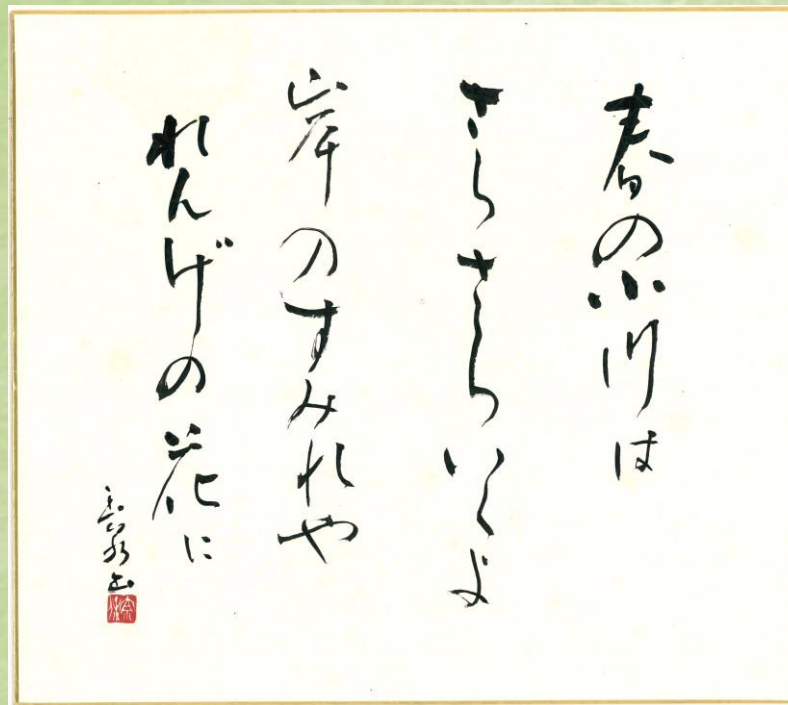 春の小川は
さらさらいくよ
岸のすみれや
れんげの花に